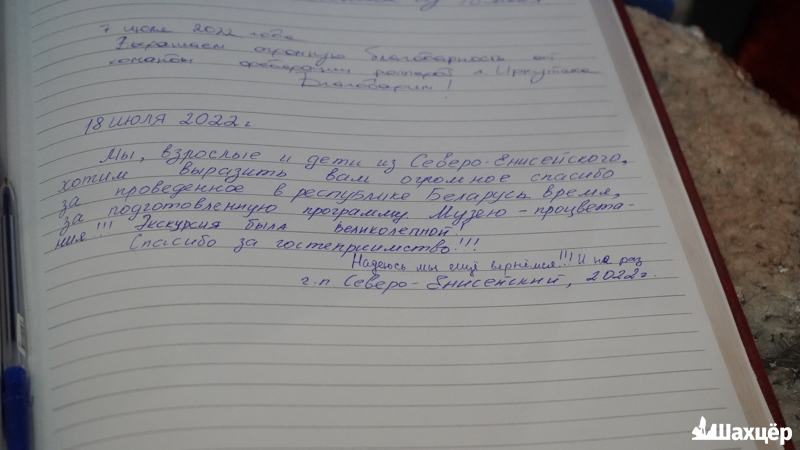 7 июля 2022 года
Выражаем огромную благодарность от
команды федерации г. Иркутска
Благодарим!
18 июля 2022г.
Мы, взрослые и дети из Северо-Енисейского,
хотим выразить вам огромное спасибо
за проведенное в республике Беларусь время,
за подготовленную программу. Музею - процвета-
ния!!! Экскурсия была великолепной!
Спасибо за гостеприимство!!!
Надеюсь мы ещё вернёмся!!! И не раз
г.п Северо-Енисейский, 2022г.
Шахцёр